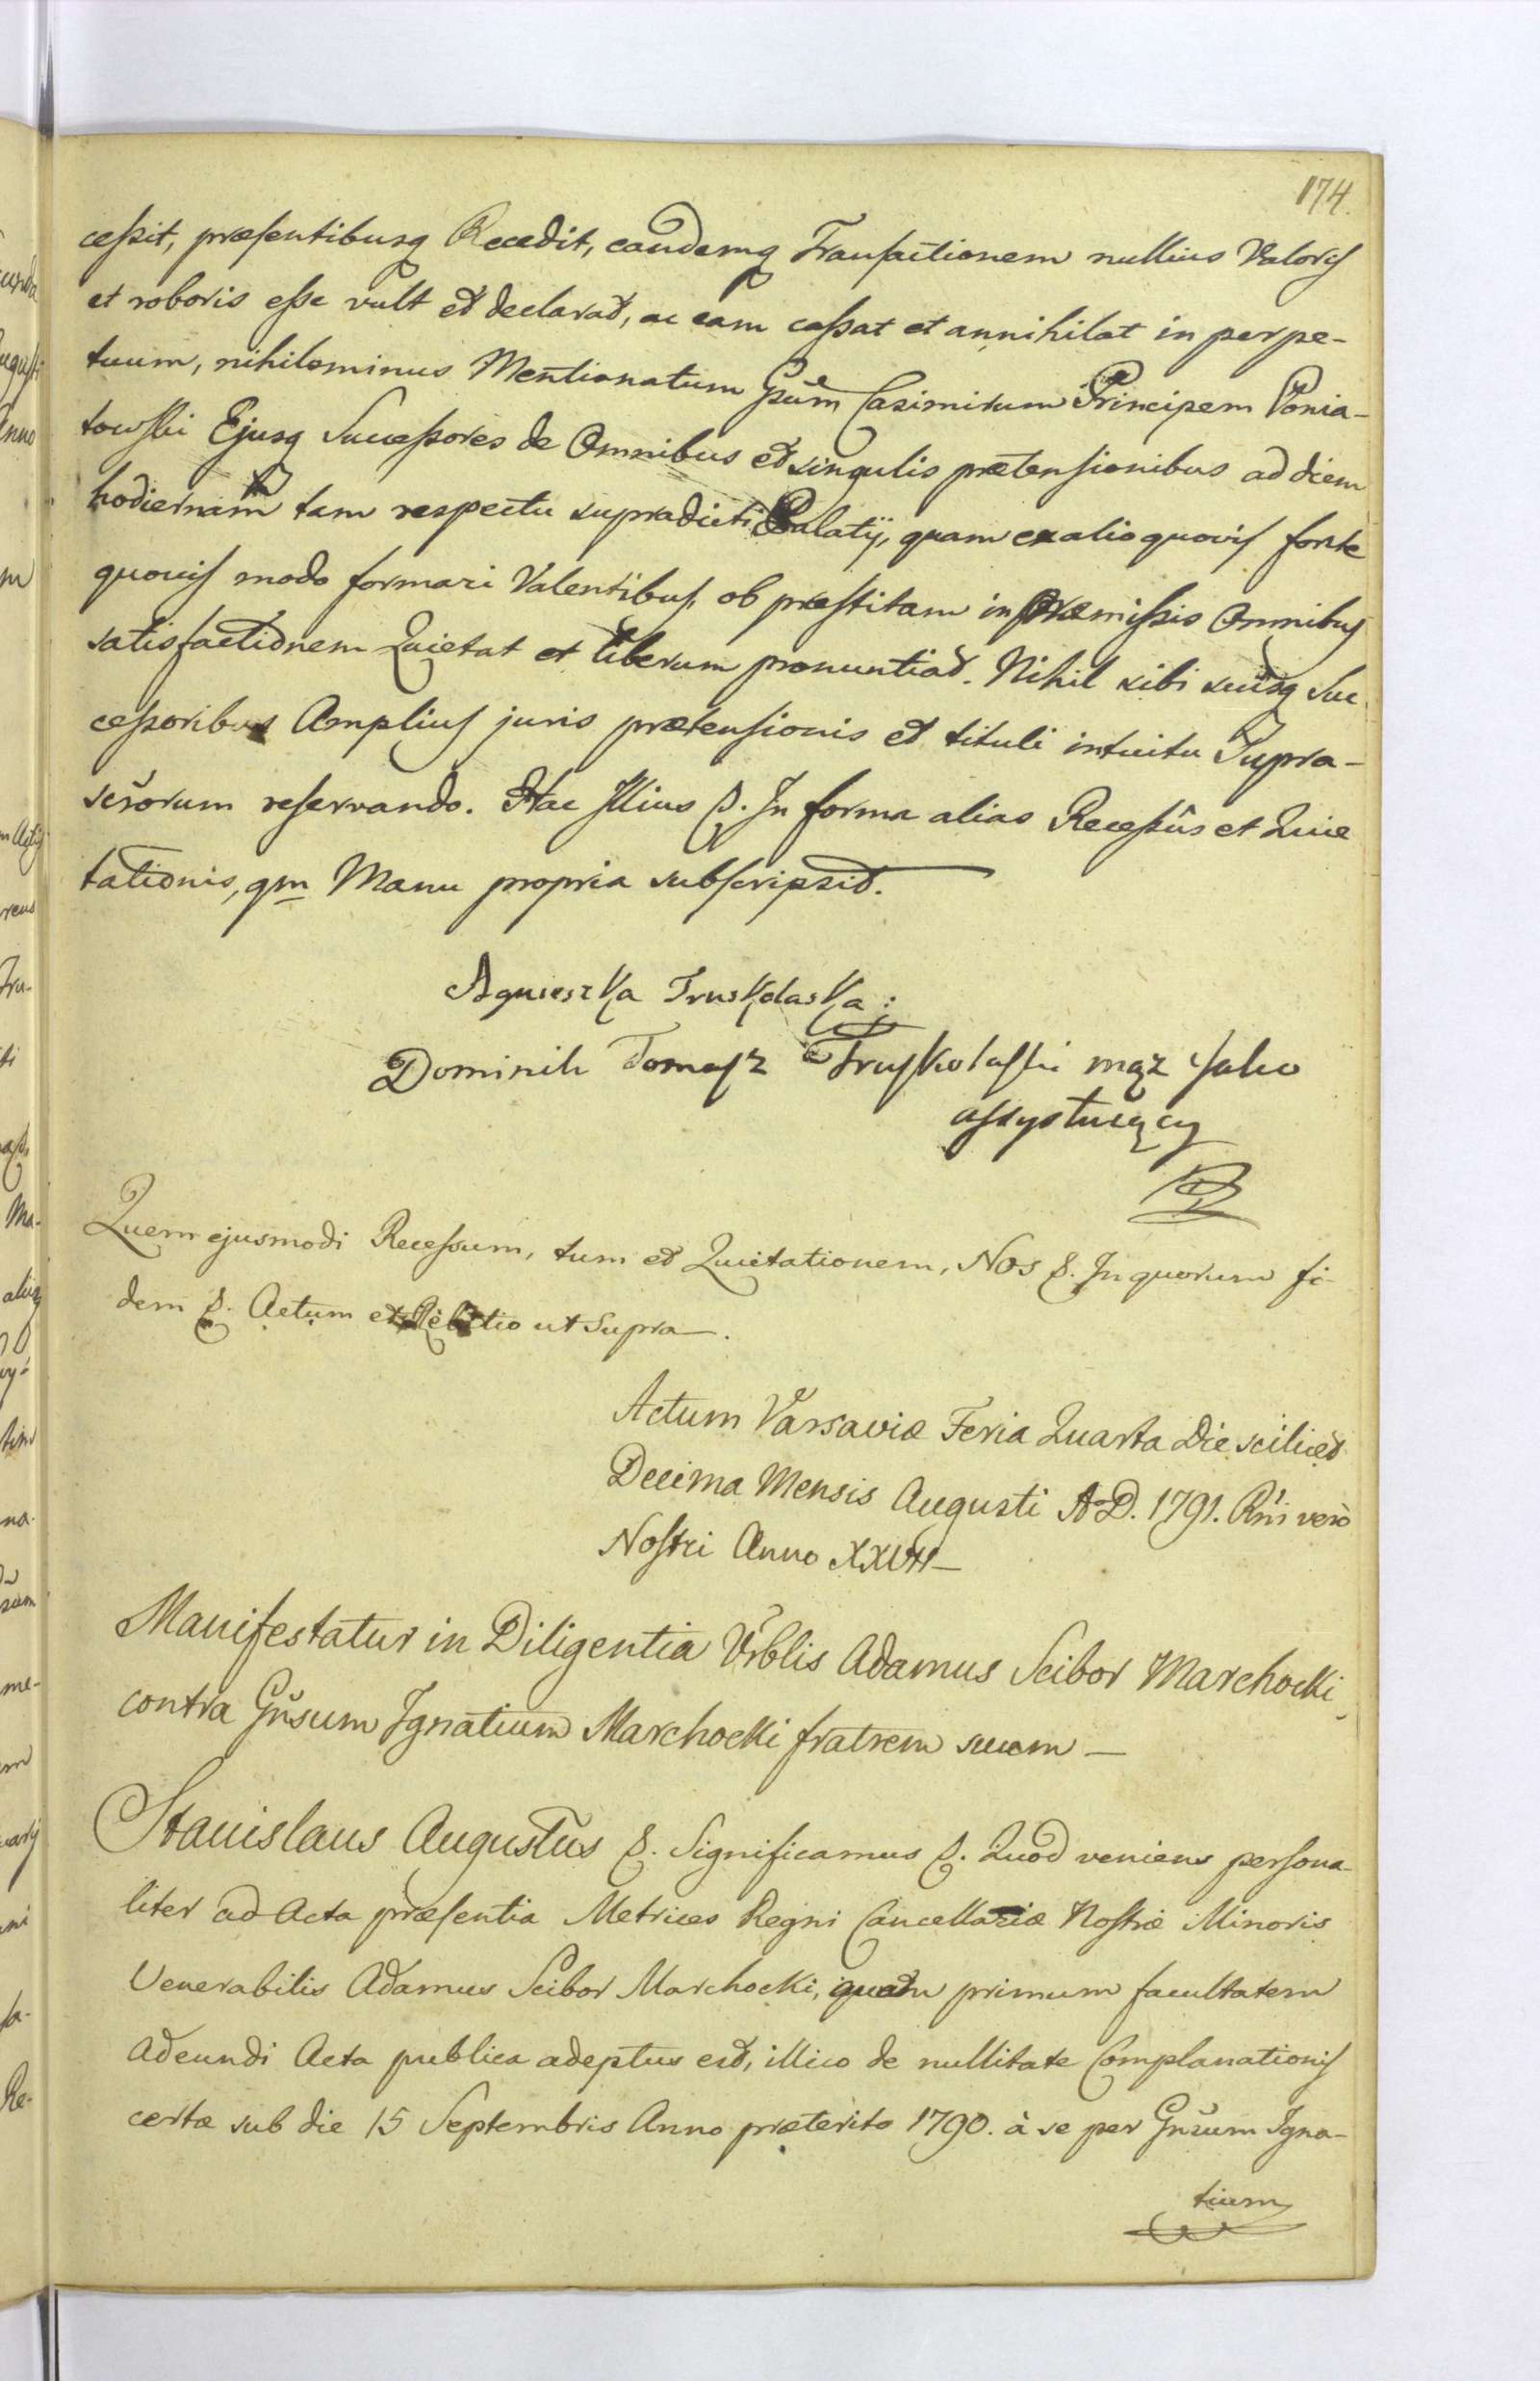 174.
ceſsit, præſentibusq Recedit, eandemq Tranſactionem nullius Valoris
et roboris eſse vult et declarat, ac eam caſsat et annihilat in perpe-
tuum, nihilominus Mentionatum Casimirum Principem Ponia-
towſki Ejusq Succeſsores de Omnibus et singulis prætenſionibus ad diem
hodiernam tam respectu supradicti Palatij, quam ex alio quovis forte
quovis modo formari Valentibus, ob præſtitam in Præmiſsis Omnibus
satisfactionem Quietat et liberum pronuntiat. Nihil sibi suisq Suc
ceſsoribus Amplius juris prætenſionis et tituli intuitu Supra-
scřorum reſervando. Hac Illius p. In forma alias Receſsûs et Quie
tationis, qm Manu propria subſcripsit.
Agnieszka Truskolaska
Dominik Tomaſz Truſkolaſki mąż jako
aſsystuiący
Quem ejusmodi Receſsum, tum et Quietationem, Nos p. In quorum fi-
dem p. Actum et ut Supra.
Actum Varsaviæ Feria Quarta Die scilicet
Decima Mensis Augusti A.D. 1791. Rni verò
Noſtri Anno XXVII
Manifestatur in Diligentia Vrblis Adamus Scibor Marchocki
contra Gnsum Ignatium Marchocki fratrem suum —
Stanislaus Augustus p. Significamus p. Quod veniens perſona-
liter ad Acta præſentia Metrices Regni Cancellariæ Noſtræ Minoris
Venerabilis Adamus Scibor Marchocki, quam primum facultatem
adeundi Acta publica adeptus est, illico de nullitate Complanationis
certæ sub die 15 Septembris Anno præterito 1790. à se per Gnsum Igna-
tium